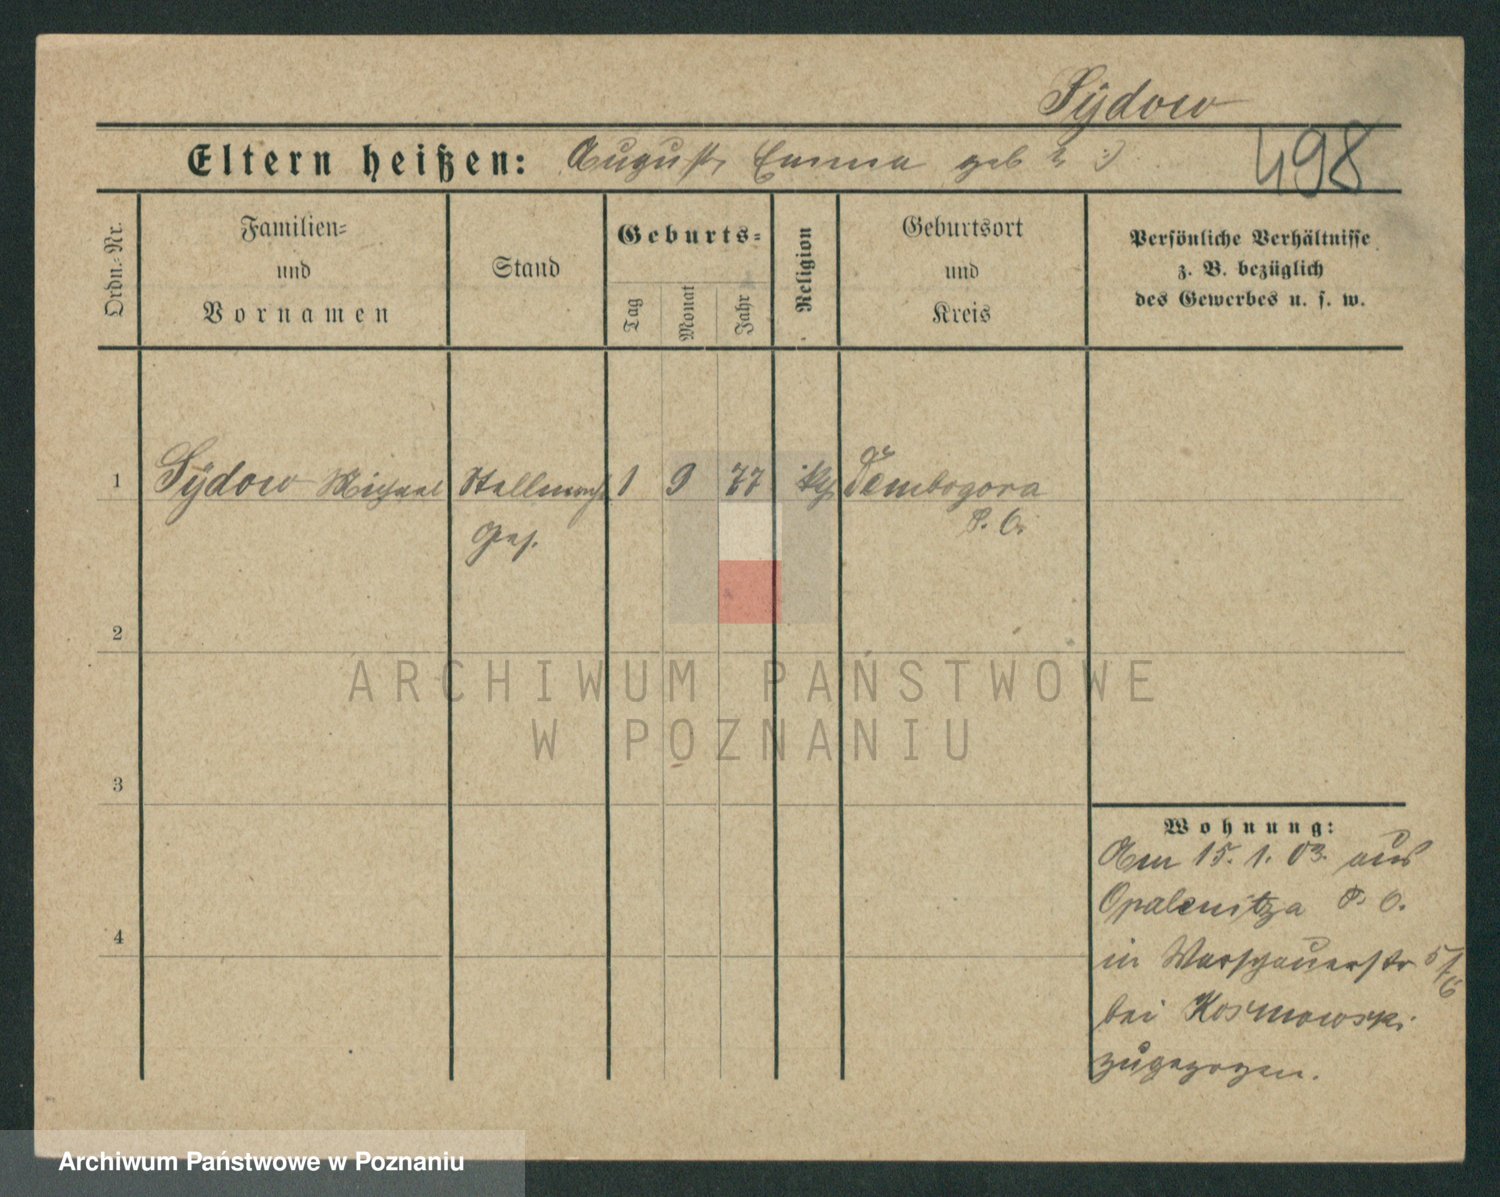 Sydow
Eltern heißen: August, Emma geb ? :)
498
Ordn.-Nr.
Familien-
und
Vornamen
Stand
Geburts-
Tag
Monat
Jahr
Religion
Geburtsort
und
Kreis
Persönliche Verhältnisse
z. B. bezüglich
des Gewerbes u. s. w.
1 Sydow Michael Stellmach 1 9 77 Dembogora
Ges. P. O.
2
ARCHIWUM PAŃSTWOWE
W POZNANIU
3
Wohnung:
Am 15. 1. 03. aus
Opalenitza P. O.
4
in Warschauerstr 5/6
bei Kosmowski
zugezogen.
Archiwum Państwowe w Poznaniu